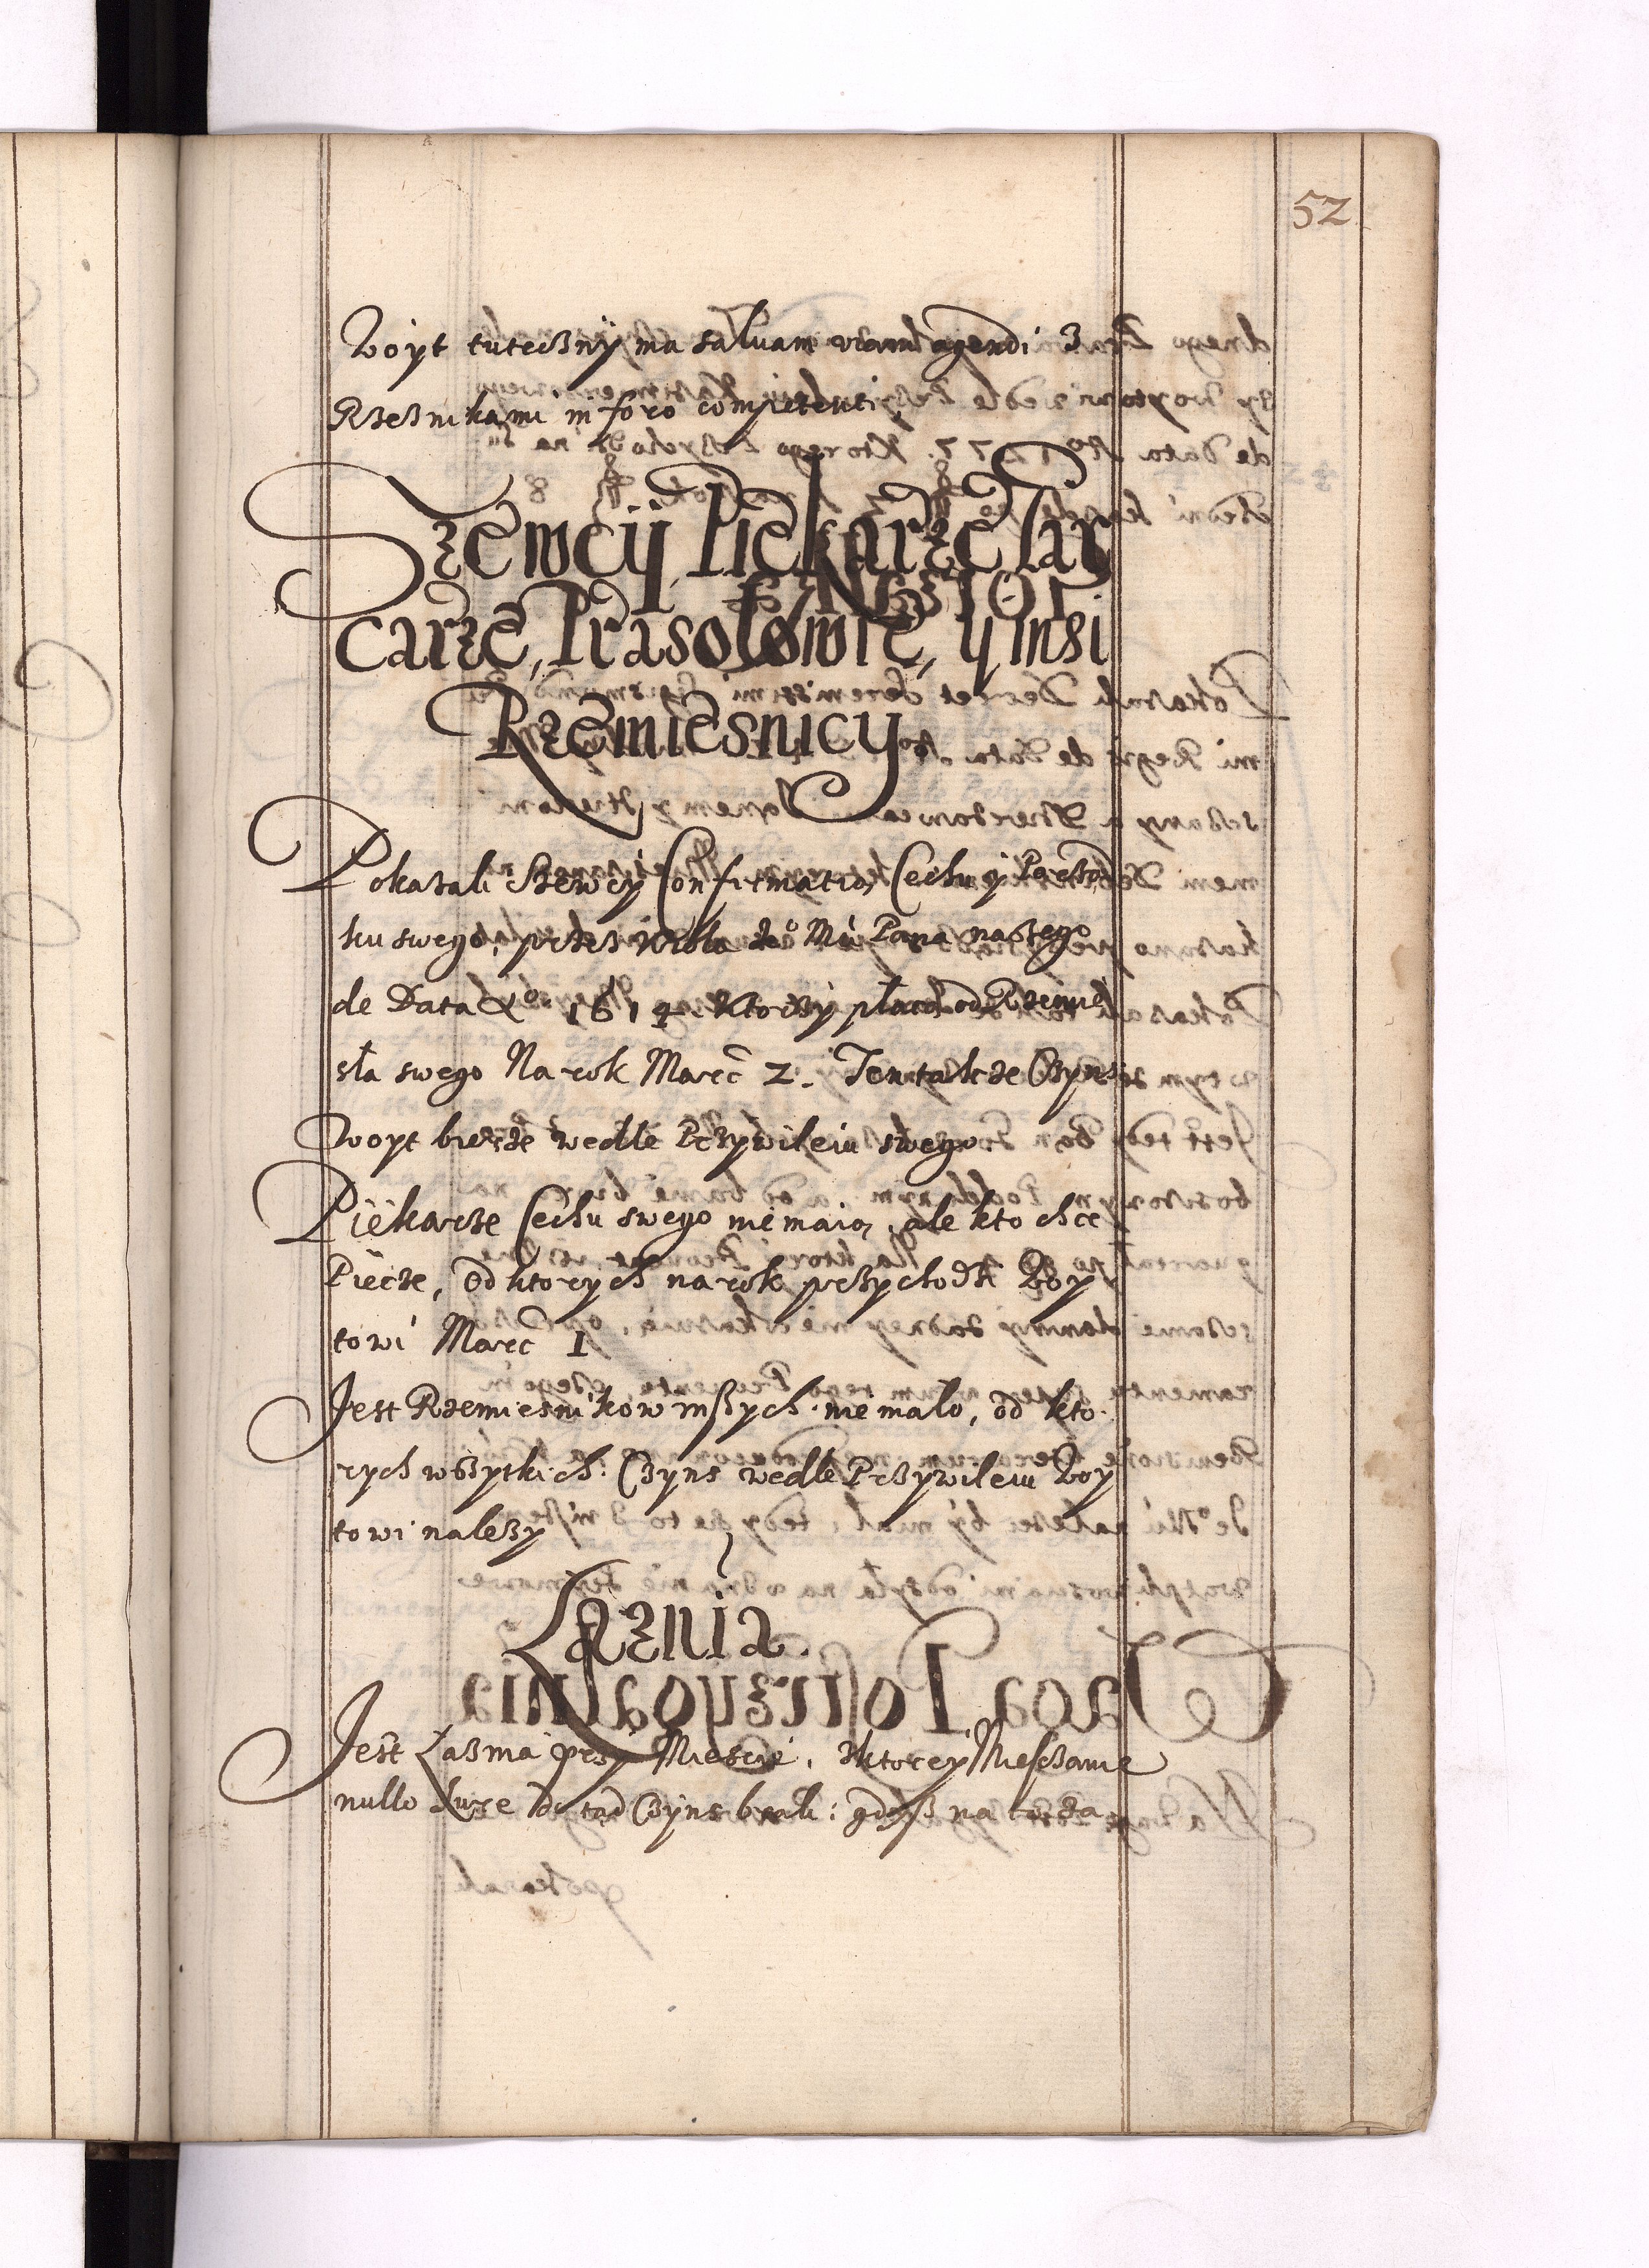 52
Woyt tuteczny ma saluam viam agendi z
Rzeznikami in foro competenti
Szewcy, Piekarze Kar
carze, Prasołowie, y insi
Rzemiesnicy
Pokazali Szewcy Confirmatią Cechu y Porząd
ku swego, przez Krola Je° Mci Pana naszego
de Data A° 1614 Ktorzy płacą od Rzemie
sła swego Na rok Marc 2. Ten takze Czyns
Woyt bierze wedle Przywileiu swego.
Piekarze Cechu swego niemaią, ale kto chce
Piecze, od ktorych na rok przychodzi Woy
towi Marc 1
Jest Rzemiesnikow inszych niemało, od kto
rych wszytkich Czyns wedle Przywileiu Woy
towi nalezy
Łaznia.
Jest Łaznia przy Miescie, z ktorey Miesczanie
nullo Iure do tąd Czyns brali: gdysz na to za